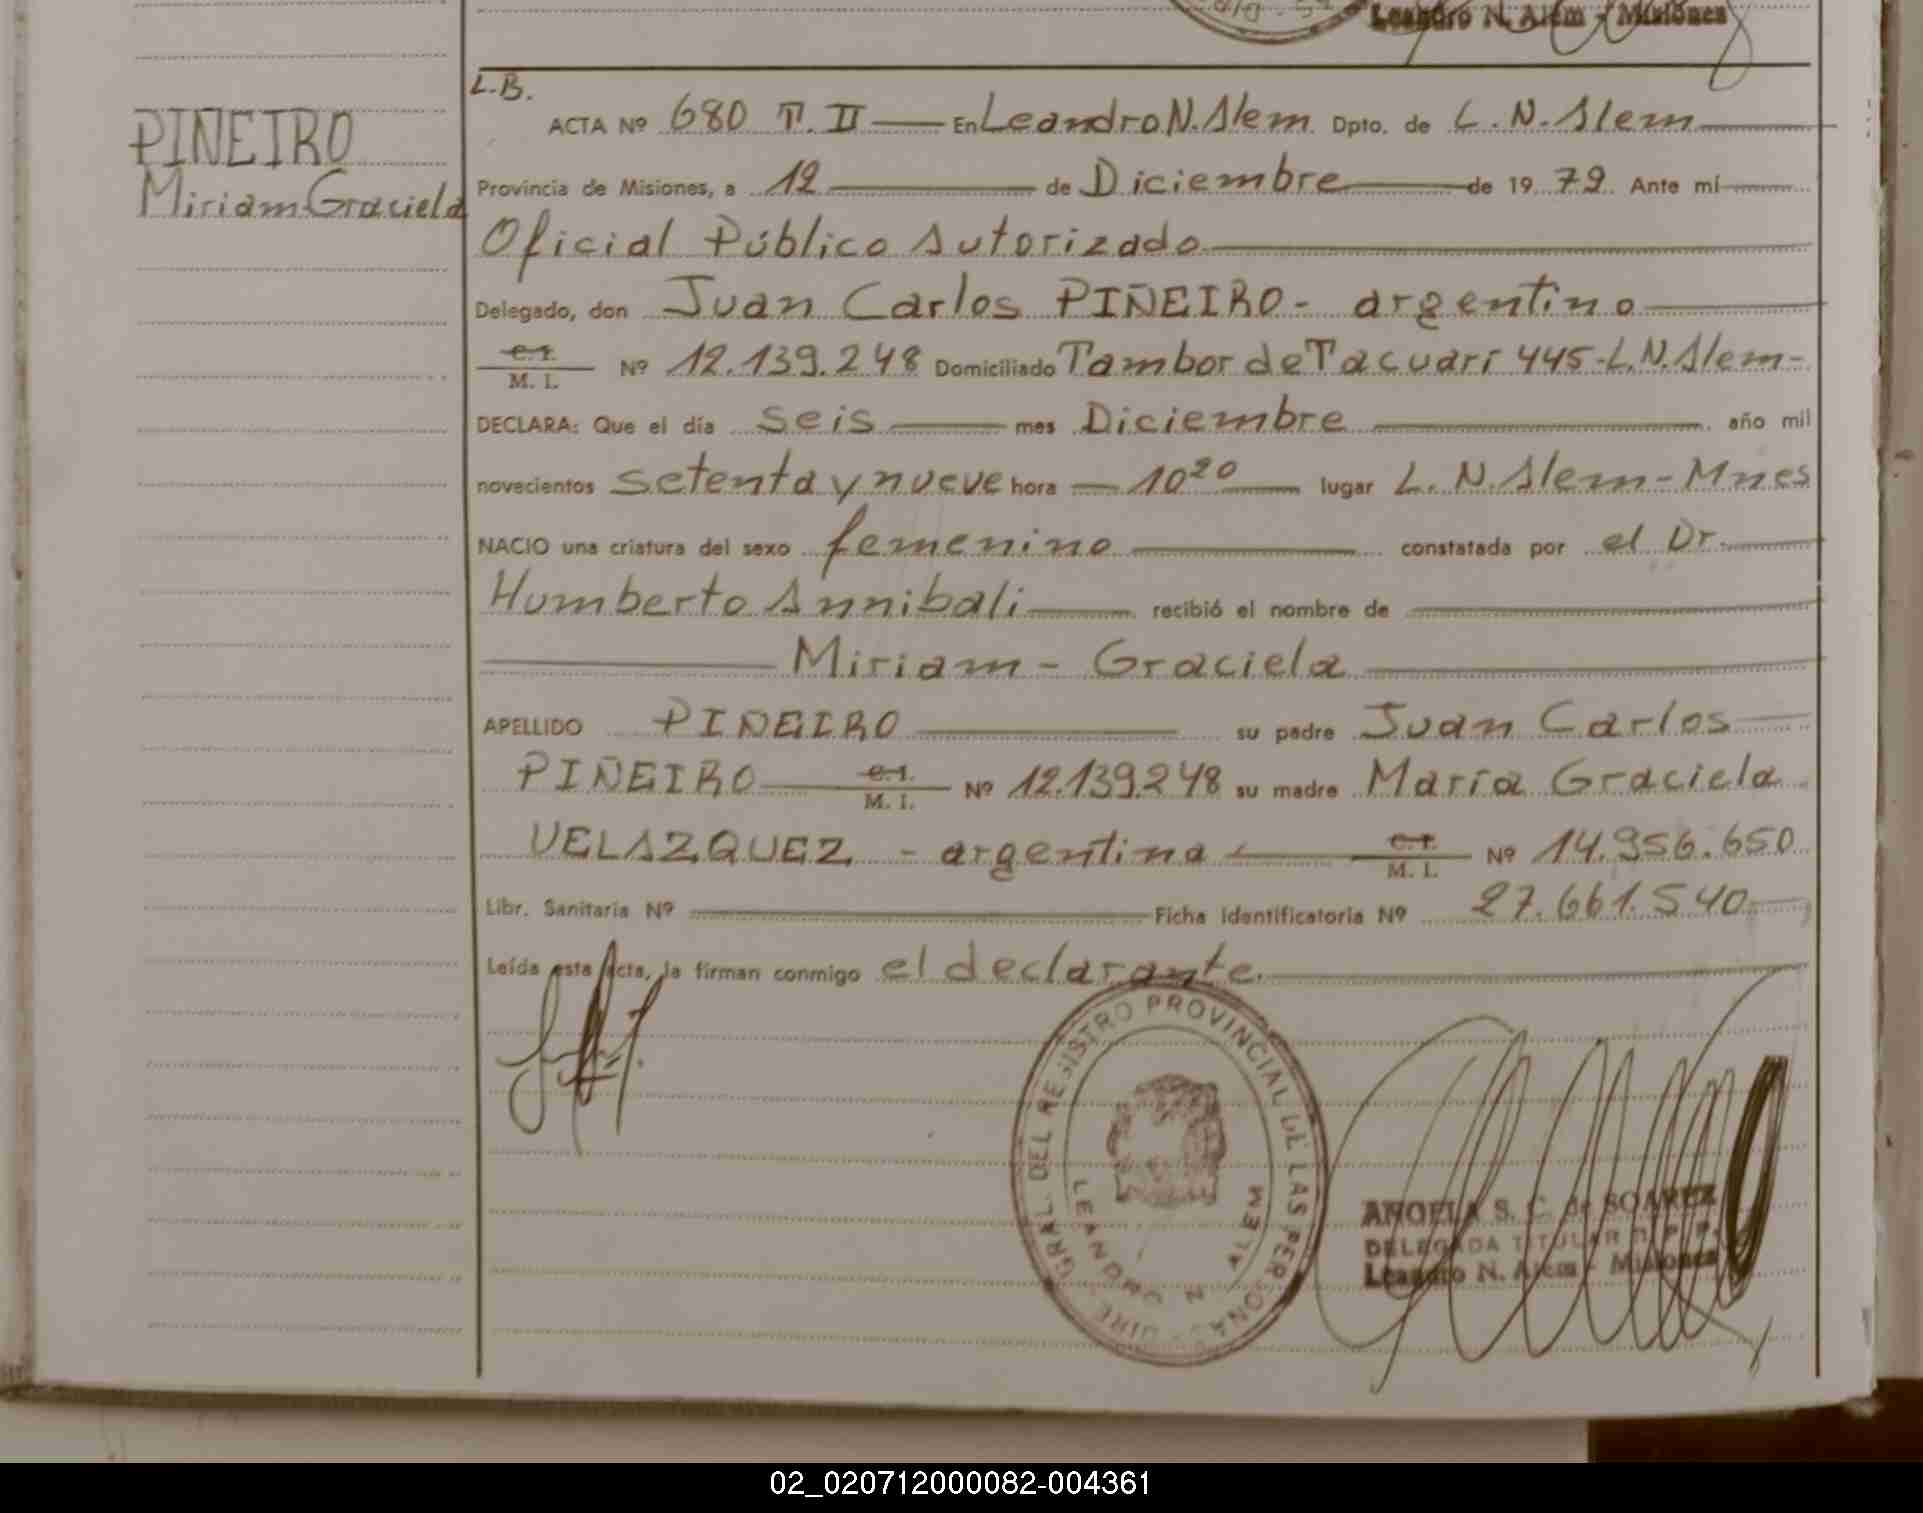 Leandro N. Alem - Misiones
L.B.
ACTA Nº 680 T. II En Leandro N. Alem Dpto. de L. N. Alem
PIÑEIRO
Miriam Graciela
Provincia de Misiones, a 12 de Diciembre de 1979. Ante mí
Oficial Público Autorizado
Delegado, don Juan Carlos PIÑEIRO - argentino
C.I.
M. I. Nº 12.139.248 Domiciliado Tambor de Tacuarí 445-L.N.Alem-
DECLARA: Que el día seis mes Diciembre año mil
novecientos setenta y nueve hora 10 20 lugar L. N. Alem - Mnes
NACIO una criatura del sexo femenino constatada por el Dr.
Humberto Annibali recibió el nombre de
Miriam - Graciela
APELLIDO PIÑEIRO su padre Juan Carlos
PIÑEIRO C.I. M. I. Nº 12.139.248 su madre María Graciela
VELAZQUEZ - argentina C.I. M. I. Nº 14.956.650
Libr. Sanitaria Nº Ficha Identificatoria Nº 27.661.540
Leída esta acta, la firman conmigo el declarante.
DIRE. GRAL. DEL REGISTRO PROVINCIAL DE LAS PERSONAS
LEANDRO N. ALEM
ANGELA S. C. de SOAREZ
DELEGADA TITULAR R. P. P.
Leandro N. Alem - Misiones
02_020712000082-004361